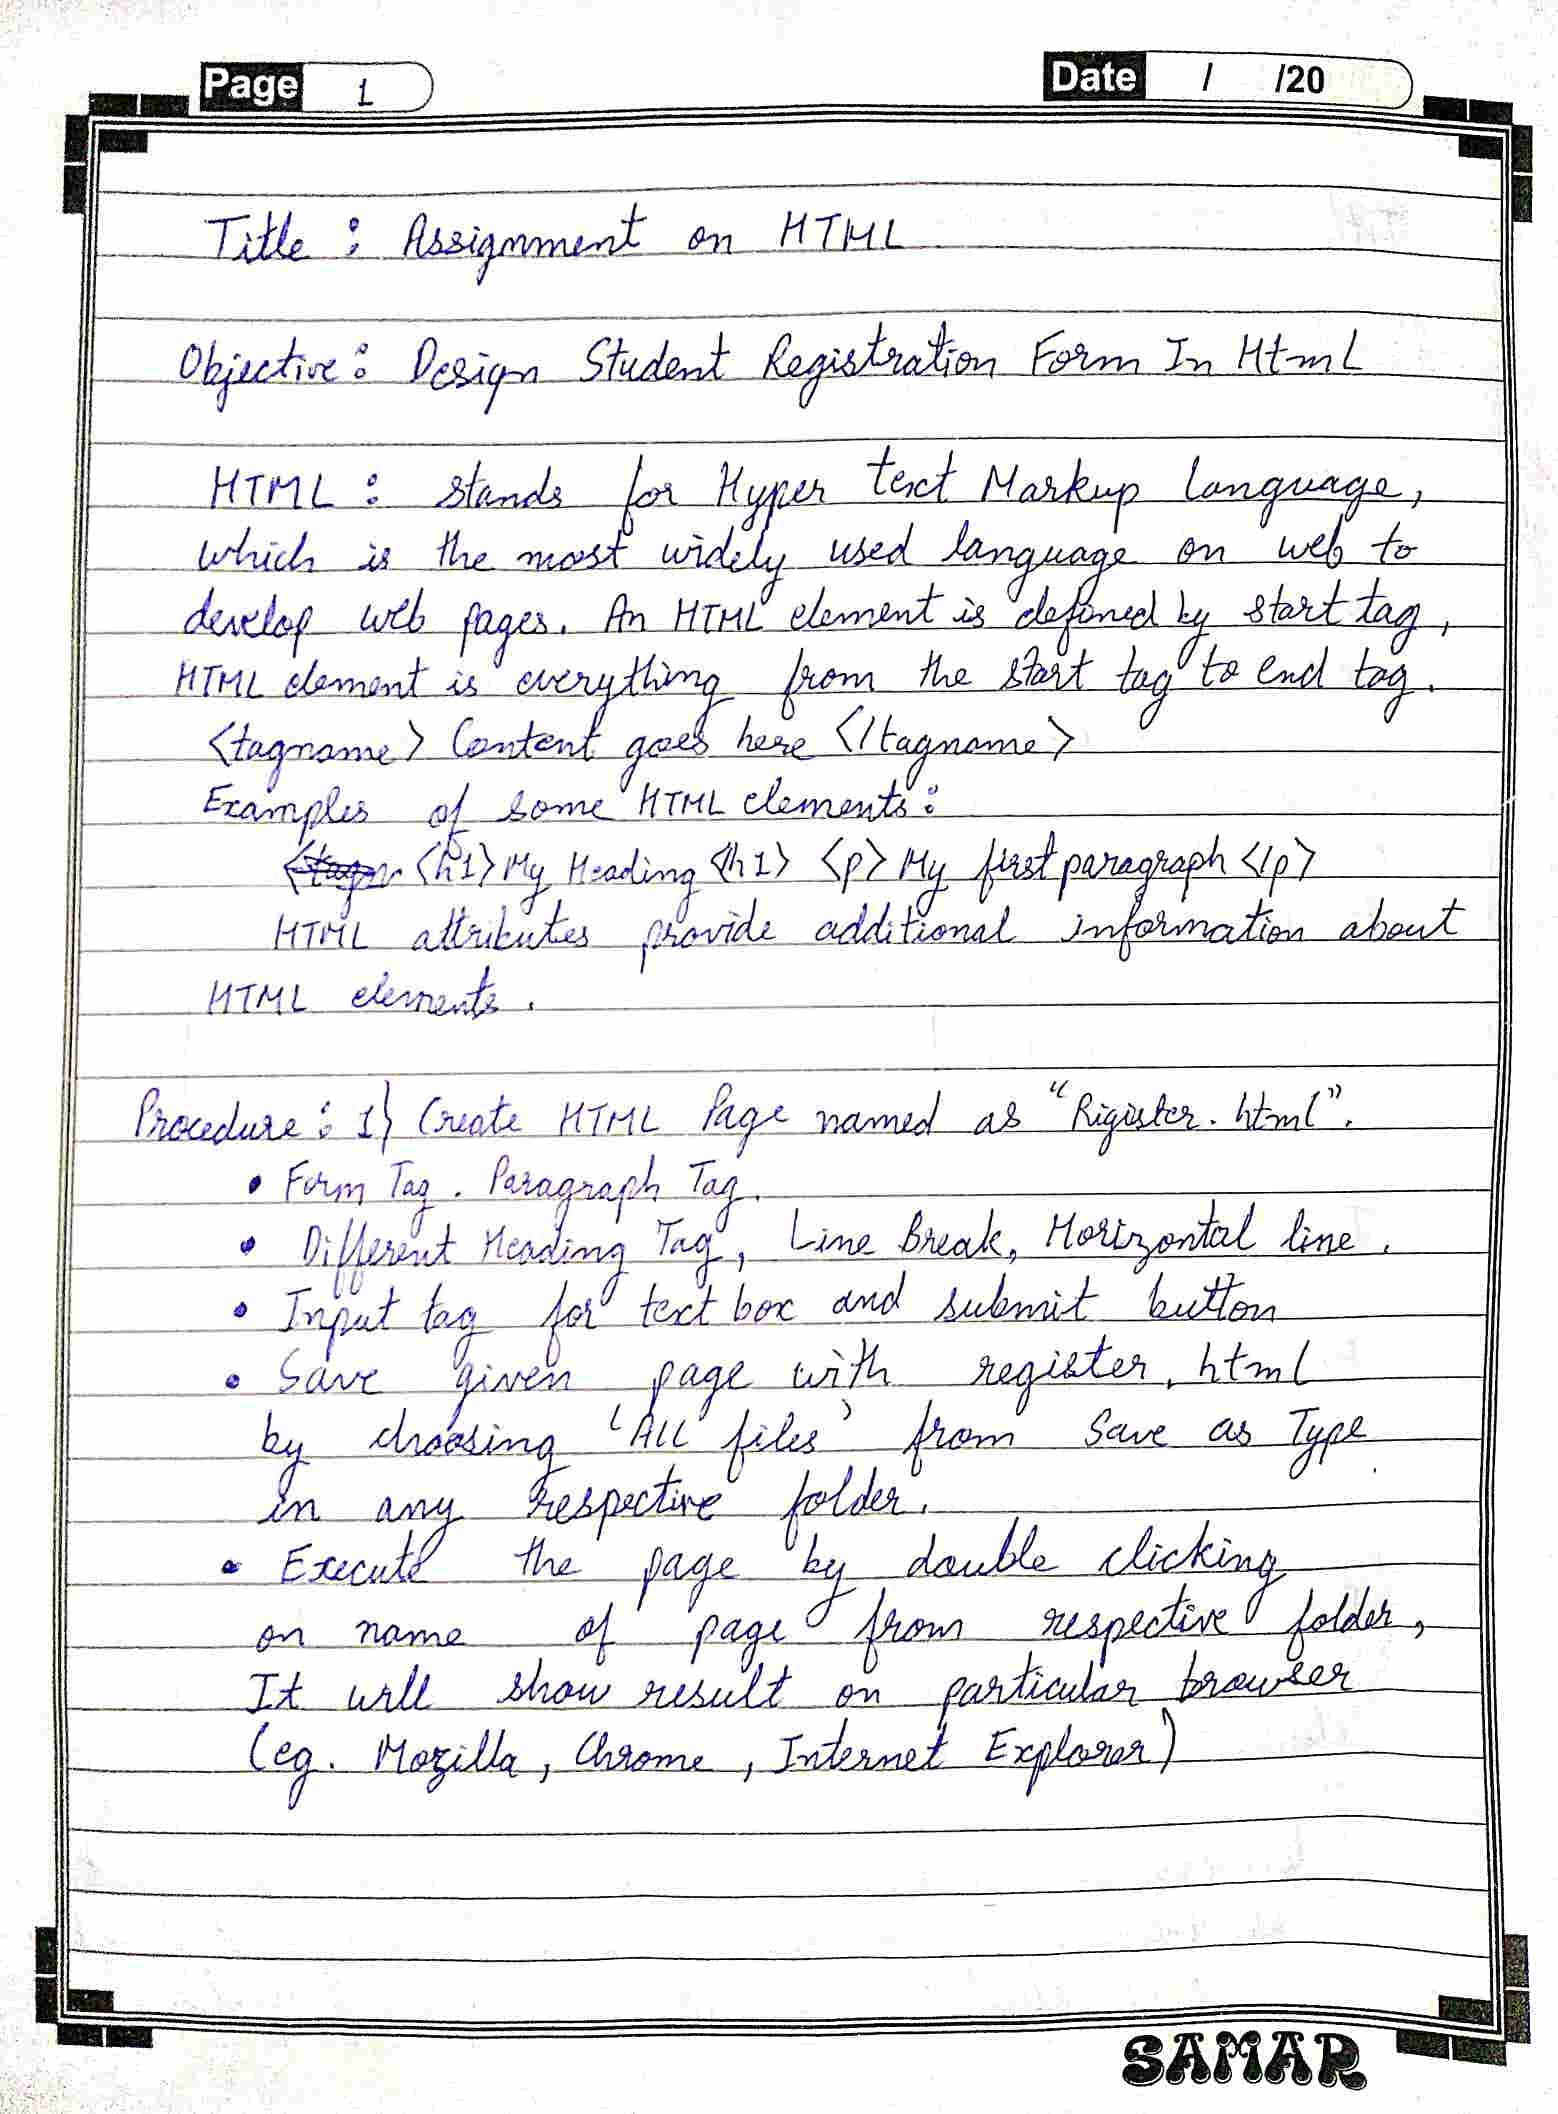 Page 1
Date / /20
Title : Assignment on HTML
Objective : Design Student Registration Form In Html
HTML : stands for Hyper text Markup language,
which is the most widely used language on web to
develop web pages. An HTML element is defined by start tag,
HTML element is everything from the start tag to end tag.
<tagname> Content goes here </tagname>
Examples of some HTML elements :
<h1> My Heading <h1> <p> My first paragraph </p>
HTML attributes provide additional information about
HTML elements.
Procedure : 1} Create HTML Page named as "Rigister.html".
• Form Tag. Paragraph Tag.
• Different Heading Tag, Line Break, Horizontal line.
• Input tag for text box and submit button
• Save given page with register.html
by choosing 'All files' from Save as Type
in any respective folder.
• Execute the page by double clicking
on name of page from respective folder,
It will show result on particular browser
(eg. Mozilla, Chrome, Internet Explorer)
SAMAR